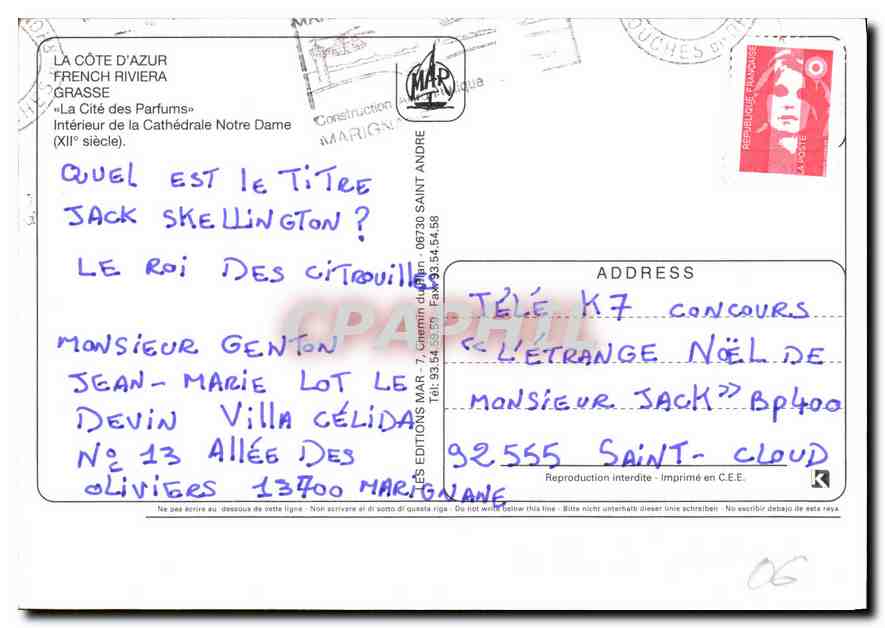 LA CÔTE D'AZUR
FRENCH RIVIERA
GRASSE
«La Cité des Parfums»
Intérieur de la Cathédrale Notre Dame
(XIIᵉ siècle).
MAR
Construction
MARIGNA
BOUCHES DU RH
RÉPUBLIQUE FRANÇAISE
LA POSTE
QUEL EST LE TITRE
JACK SKELLINGTON?
LE ROI DES CITROUILLES
MONSIEUR GENTON
JEAN-MARIE LOT LE
DEVIN VILLA CÉLIDA
N° 13 ALLÉE DES
OLIVIERS 13700 MARIGNANE
LES EDITIONS MAR - 7, Chemin du Plan - 06730 SAINT ANDRE
Tél: 93.54.59.59 Fax: 93.54.54.58
ADDRESS
TÉLÉ K7 CONCOURS
« L'ÉTRANGE NOËL DE
MONSIEUR JACK» Bp400
92555 SAINT-CLOUD
Reproduction interdite - Imprimé en C.E.E.
K
Ne pas écrire au dessous de cette ligne - Non scrivere al di sotto di questa riga - Do not write below this line - Bitte nicht unterhalb dieser linie schreiben - No escribir debajo de esta raya
CPAPHIL
06